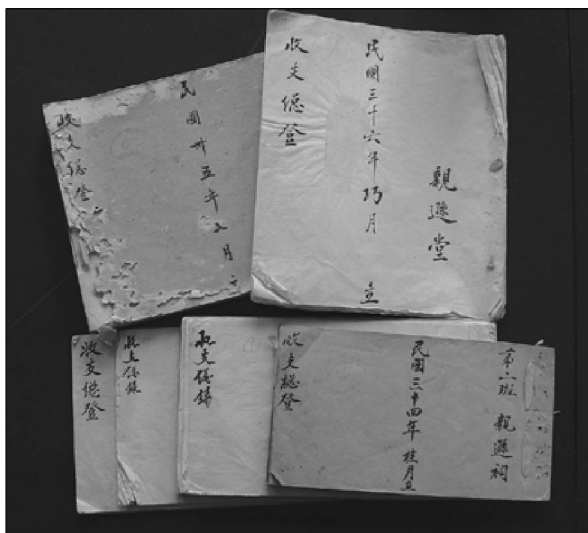 親遜堂
民國三十六年巧月 立
收支總登
民國卅五年 月 立
收支總登
第六班 親遜祠
民國三十四年桂月立
收支總登
收支總錄
收支總錄
收支總登